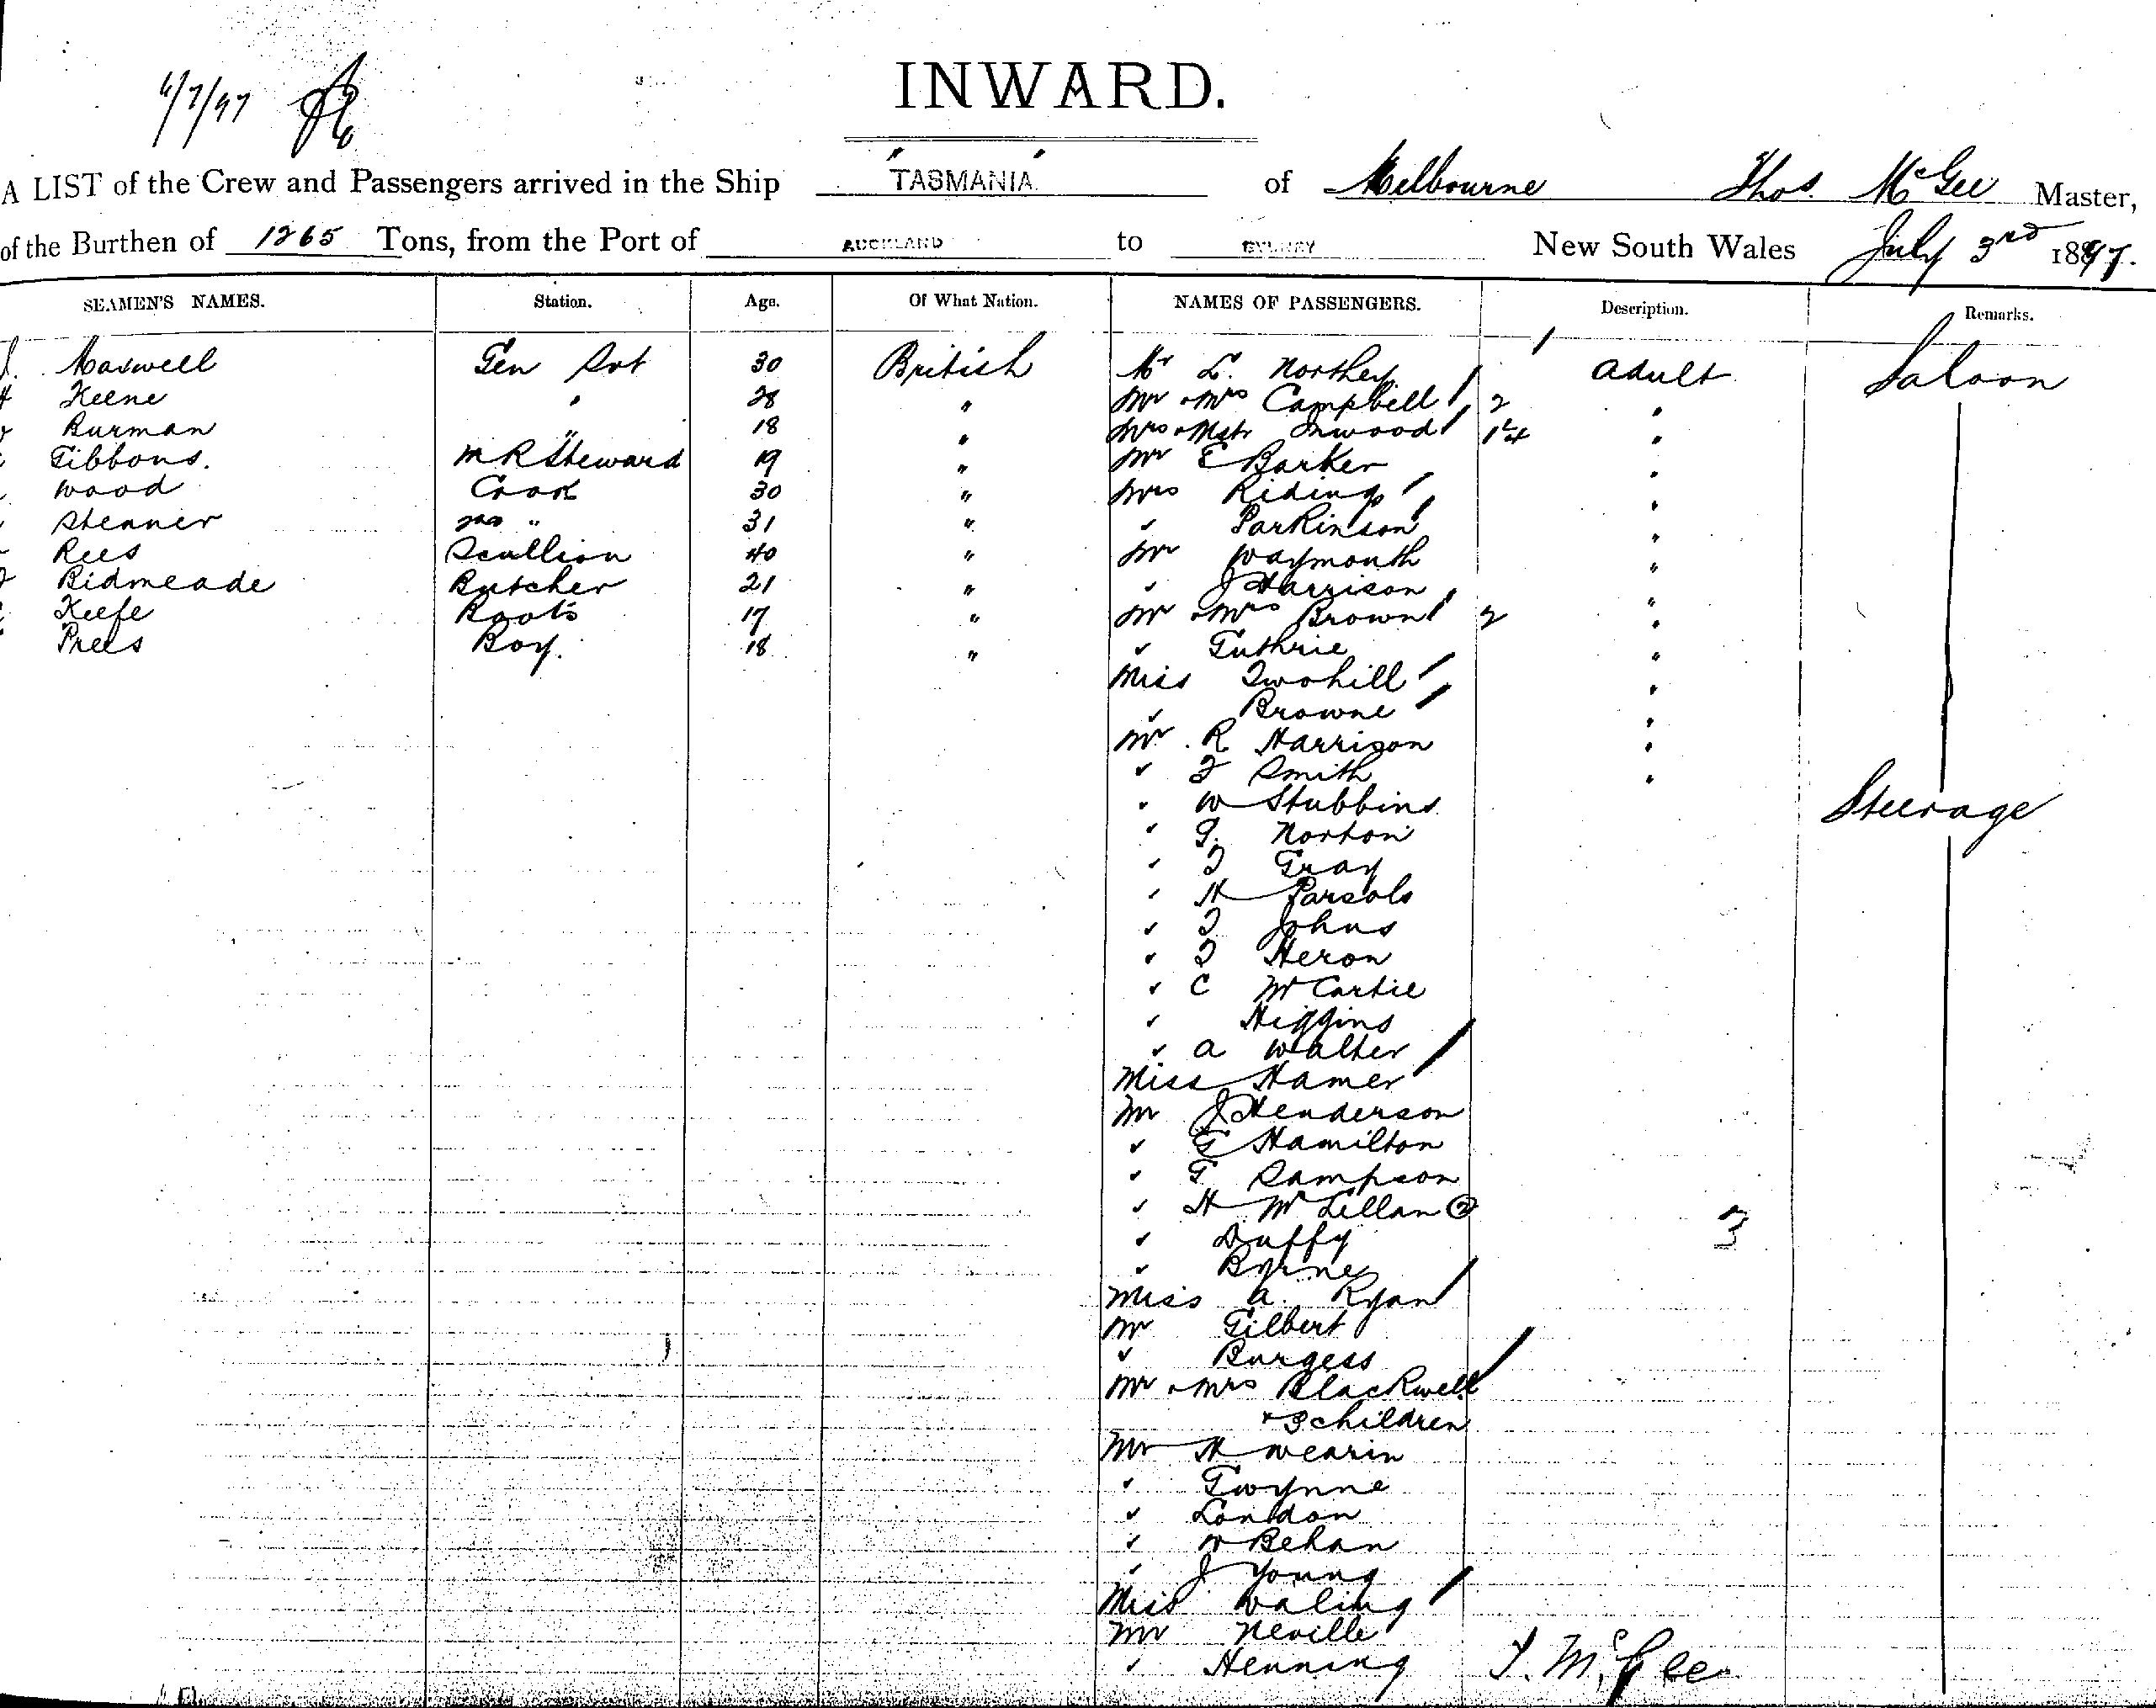 6/7/97
INWARD.
A LIST of the Crew and Passengers arrived in the Ship TASMANIA of Melbourne Thos. McGee Master,
of the Burthen of 1265 Tons, from the Port of AUCKLAND to SYDNEY New South Wales July 3rd 1897.
SEAMEN'S NAMES. Station. Age. Of What Nation. NAMES OF PASSENGERS. Description. Remarks.
Maxwell Gen Svt 30 British Mr L. Northey adult Saloon
Keene " 28 " Mr & Mrs Campbell 2 "
Burman " 18 " Mrs & Mstr Inwood "
Gibbons. M R Steward 19 " Mr E Barker "
Wood Cook 30 " Mrs Ridings "
Stenner " 31 " " Parkinson "
Rees Scullion 40 " Mr Waymouth "
Bidmeade Butcher 21 " " J Harrison "
Keefe Boots 17 " Mr & Mrs Brown 2 "
Prees Boy. 18 " " Guthrie "
Miss Twohill "
" Browne "
Mr. R Harrison "
" Smith "
" W Stubbins Steerage
" Norton
" Gray
" H Parsols
" Johns
" Heron
" C McCartie
" Higgins
" A Walter
Miss Hamer
Mr J Henderson
" G Hamilton
" Sampson
" H McLellan (2)
" Duffy
" Byrne
Miss A. Ryan
Mr Gilbert
" Burgess
Mr & Mrs Blackwell
& 3 children
Mr H Wearin
" Gwynne
" London
" Behan
" J Young
Miss Waling
Mr Neville
" Henning T. McGee